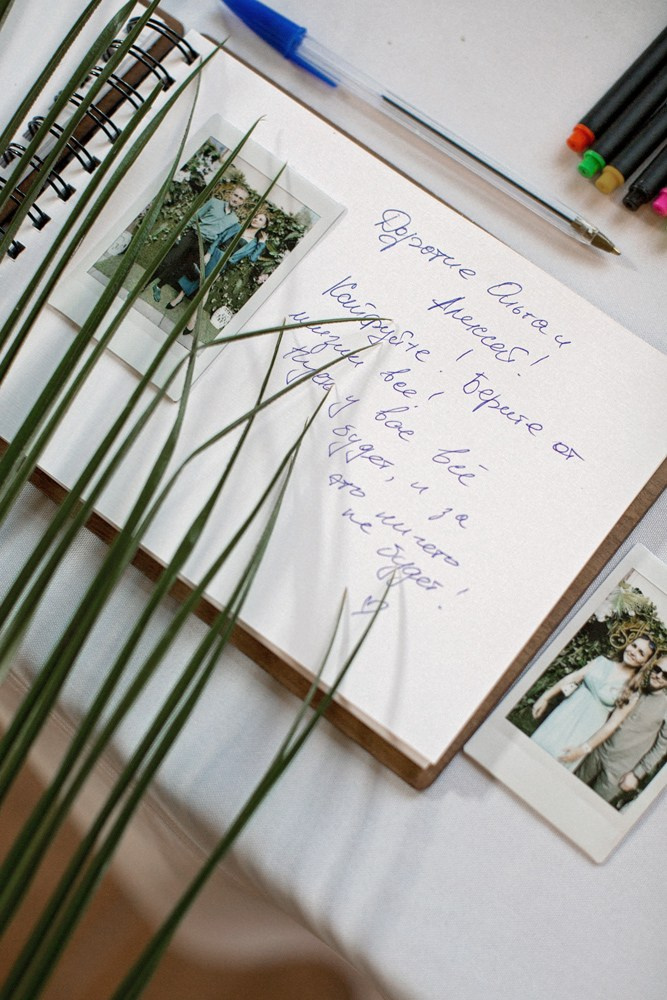 Дорогие Ольга и
Алексей!
Кайфуйте! Берите от
жизни всё!
Пусть у вас всё
будет, и за
это ничего
не будет!
♡